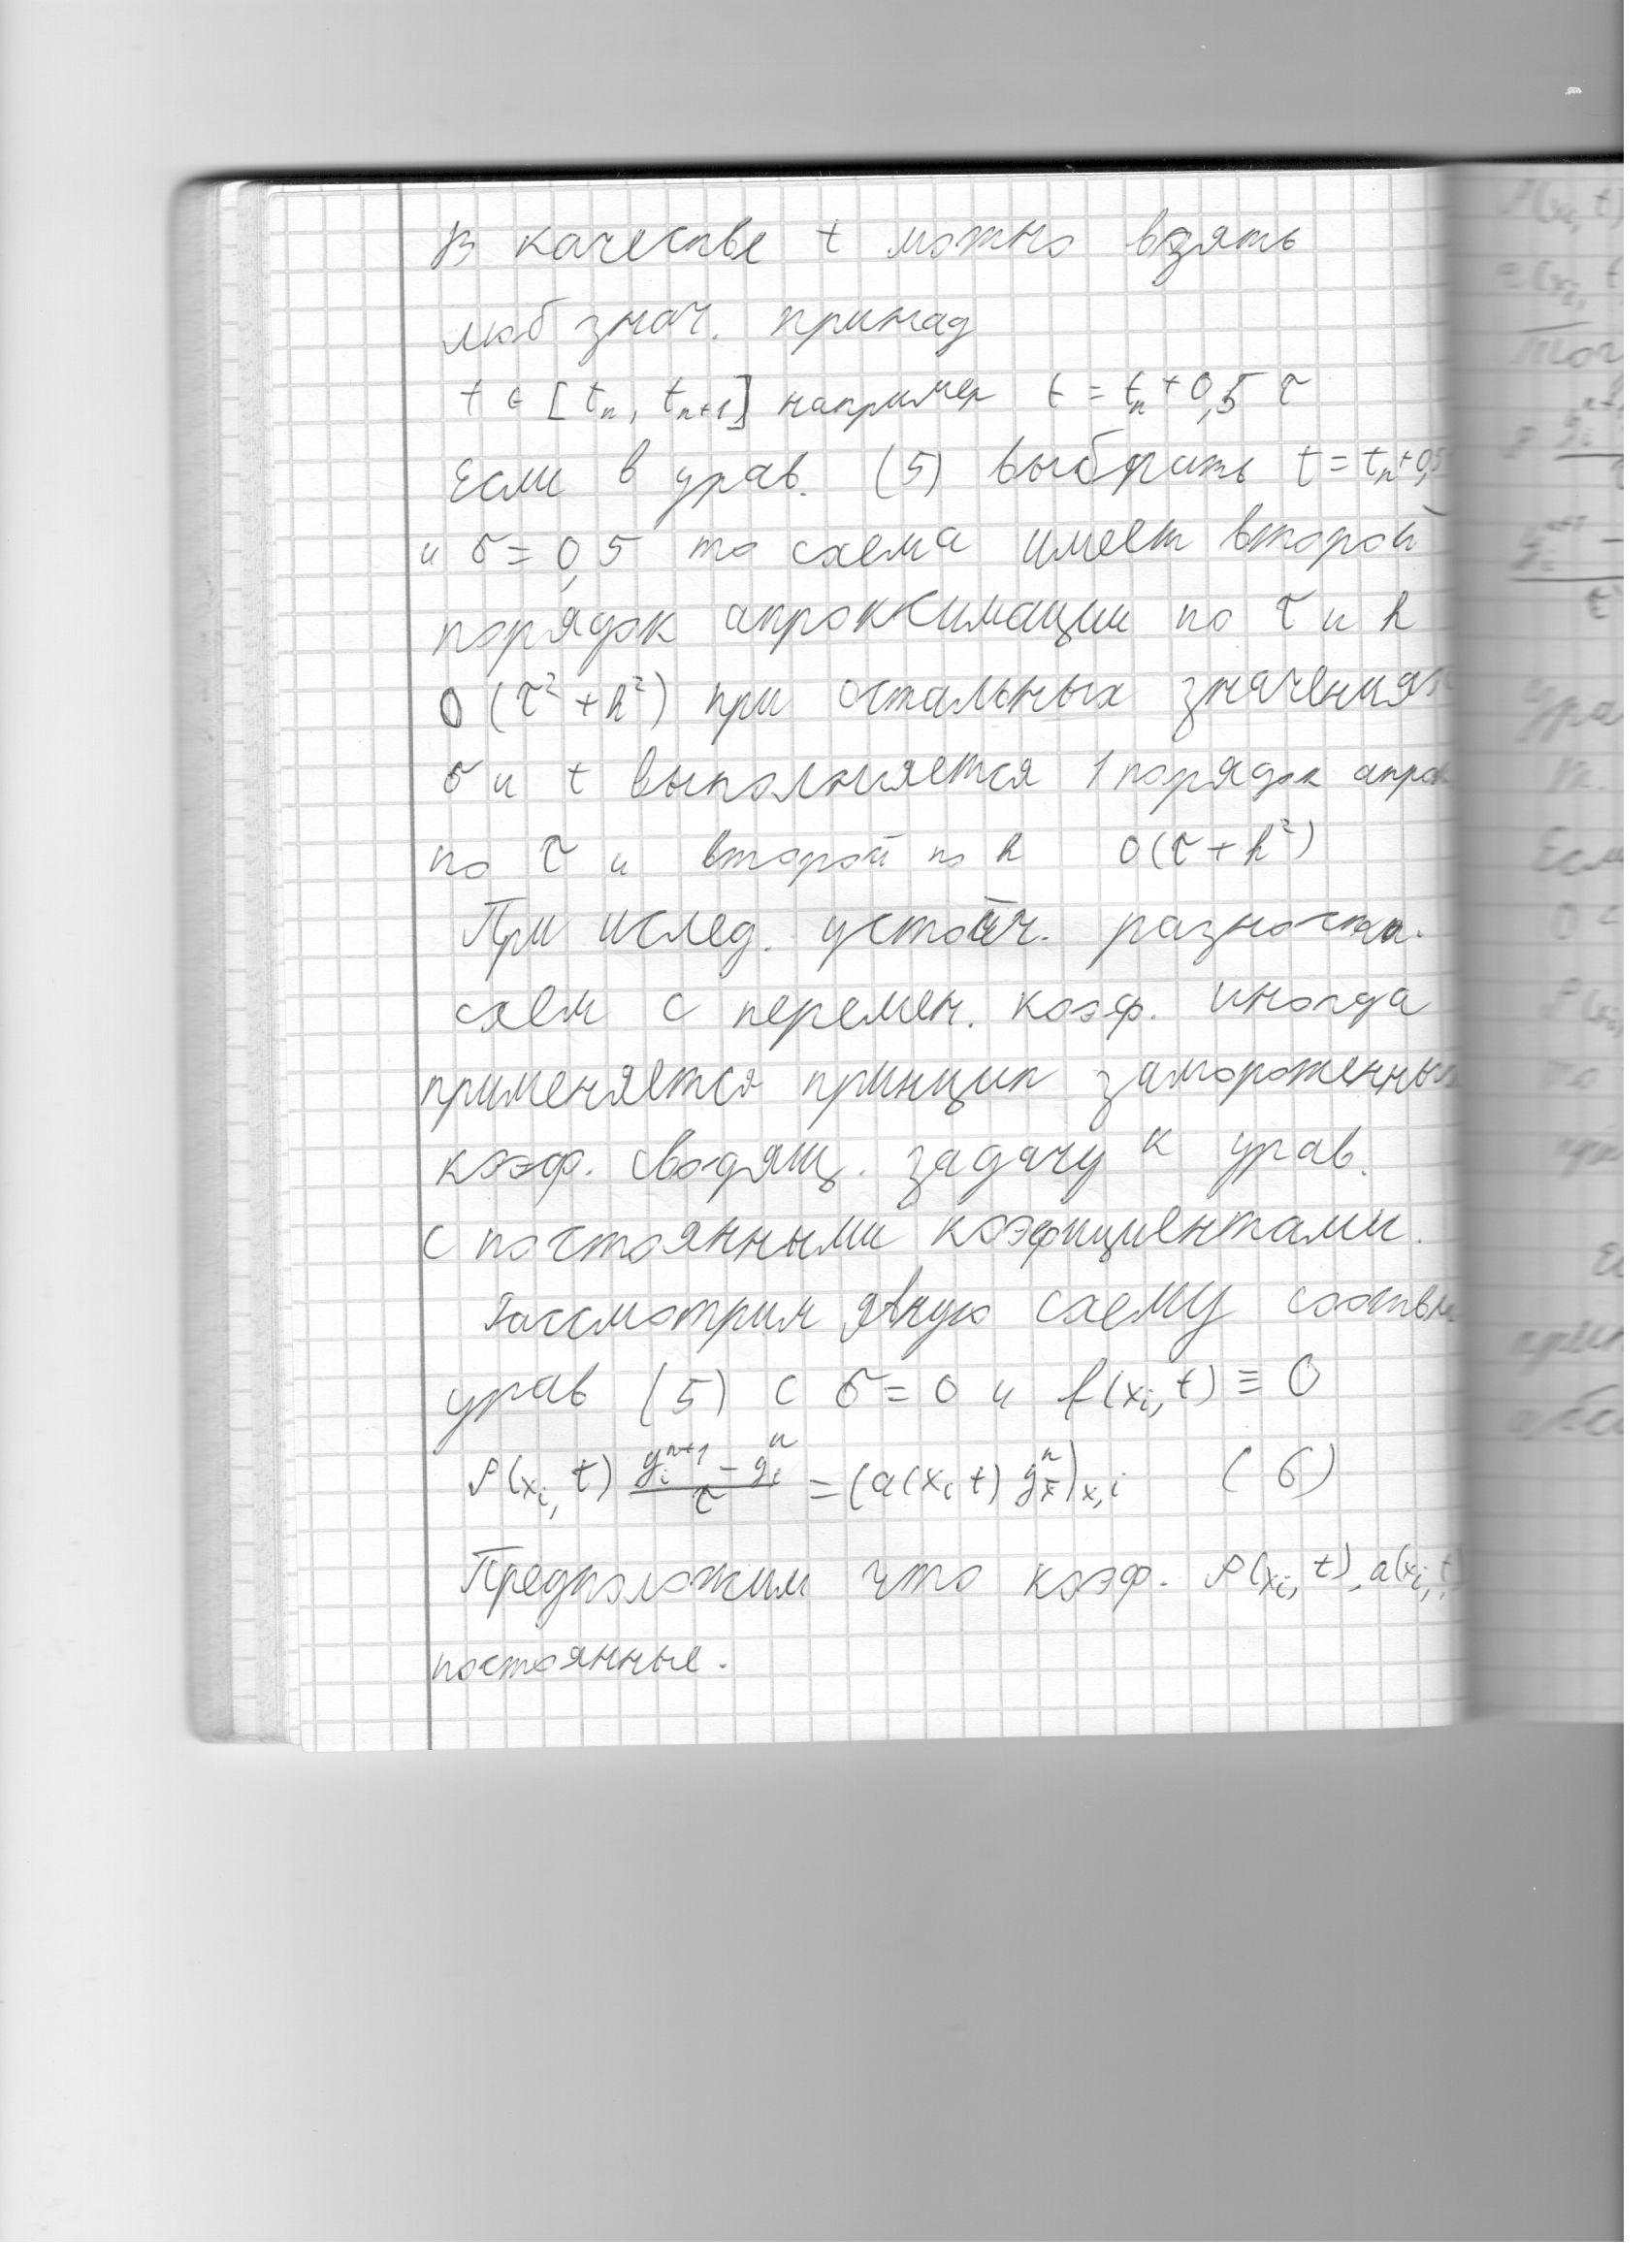 В качестве t можно взять
люб знач. принад
t ∈ [tₙ, tₙ₊₁] например t = tₙ + 0,5 τ
Если в урав. (5) выбрать t = tₙ + 0,5
и σ = 0,5 то схема имеет второй
порядок апроксимации по τ и h
O (τ² + h²) при остальных значениях
σ и t выполняется 1 порядок апрок
по τ и второй по h O(τ + h²)
При исслед. устойч. разностн.
схем с перемен. коэф. иногда
применяется принцип замороженных
коэф. сводящ. задачу к урав.
с постоянными коэфициентами.
Рассмотрим явную схему соотв
урав (5) с σ = 0 и f(xᵢ, t) ≡ 0
ρ(xᵢ, t) (yᵢⁿ⁺¹ − yᵢⁿ)/τ = (a(xᵢ t) yⁿ_x̄)ₓ,ᵢ (6)
Предположим что коэф. ρ(xᵢ, t), a(xᵢ, t)
постоянные.